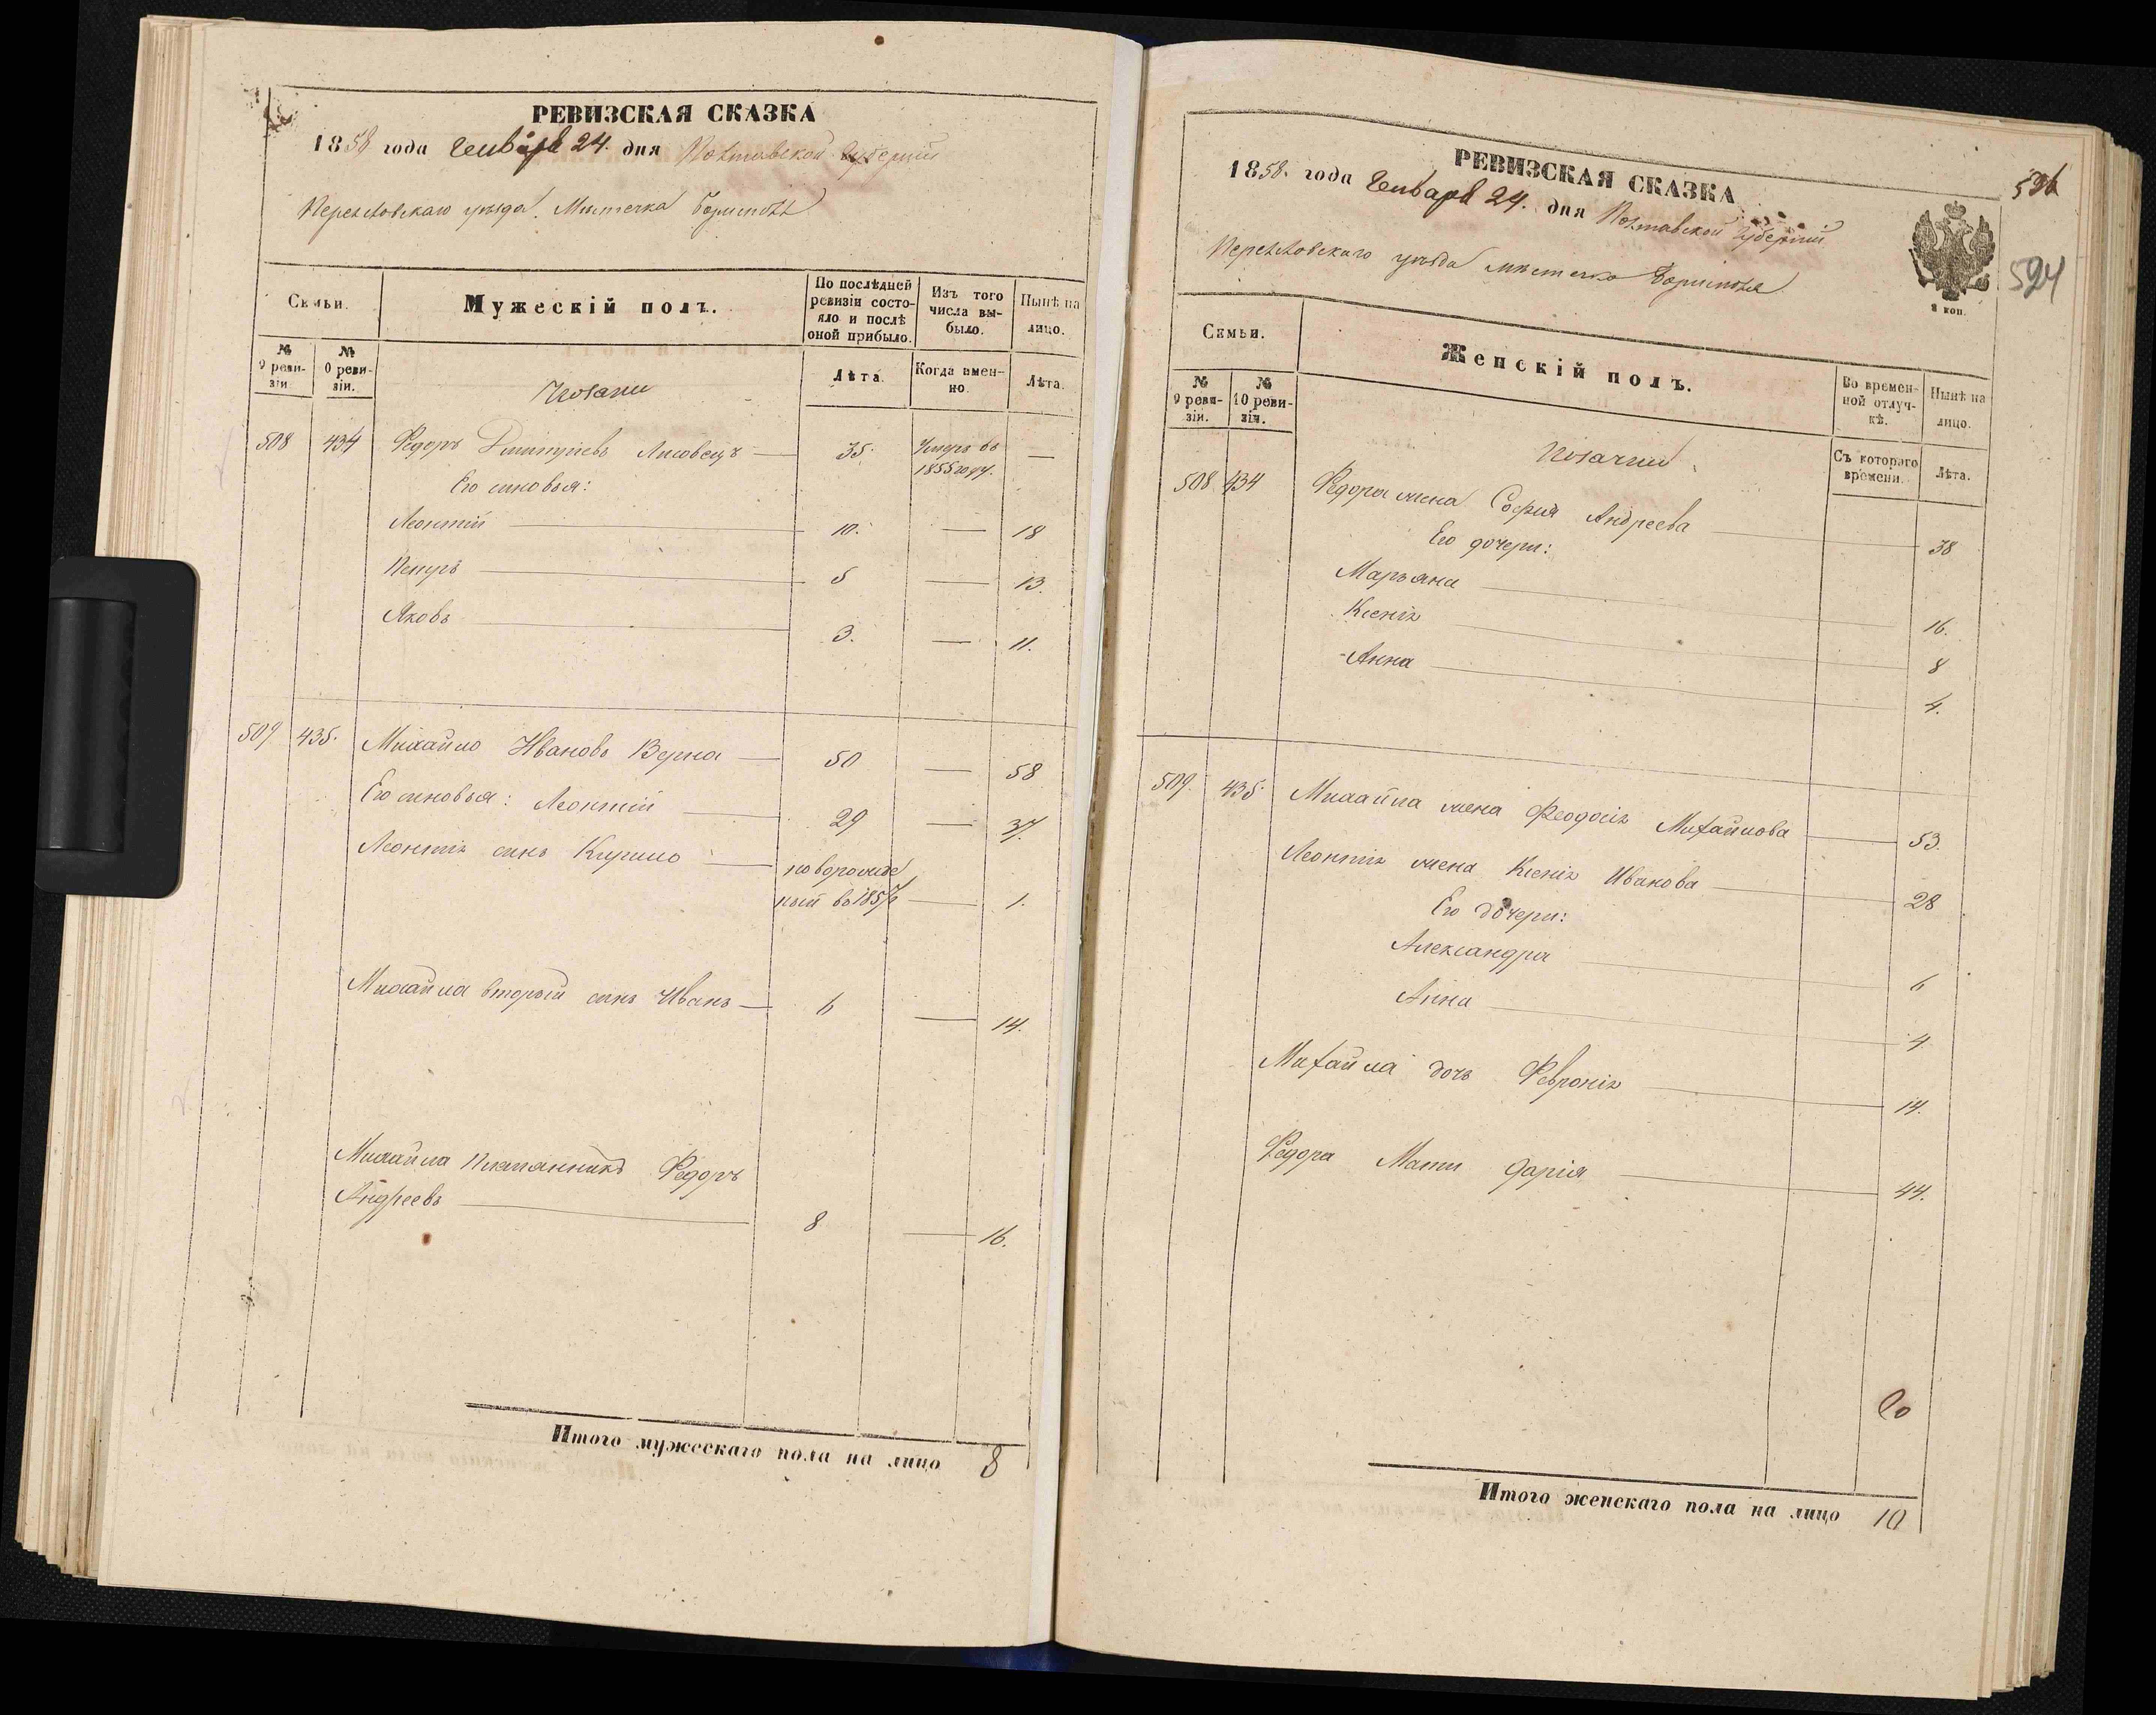 РЕВИЗСКАЯ СКАЗКА
1858 года Генваря 24. дня Полтавской Губерніи
Переяловскаго уѣзда. Мѣстечка Борисполя
Семьи.
Мужескій полъ.
По послѣдней ревизіи состояло и послѣ оной прибыло.
Изъ того числа выбыло.
Нынѣ на лицо.
№ 9 ревизіи.
№ 0 ревизіи.
Лѣта.
Когда именно.
Лѣта.
Козаки
508 434 Федоръ Дмитріевъ Лисовецъ — 35. Умеръ въ 1855 году. —
Его сыновья:
Леонтій — 10. — 18
Петръ — 5 — 13.
Яковъ — 3. — 11.
509 435. Михайло Ивановъ Верна — 50 — 58
Его сыновья: Леонтій — 29 — 37.
Леонтія сынъ Кирило — новорожде
ный въ 1857 г — 1.
Михайла вторый сынъ Иванъ — 6 — 14.
Михайла Племянникъ Федоръ
Андреевъ — 8 — 16.
Итого мужескаго пола на лицо 8
РЕВИЗСКАЯ СКАЗКА
1858. года Генваря 24. дня Полтавской Губерніи
Переяловскаго уѣзда мѣстечка Борисполя
524
Семьи.
Женскій полъ.
Во временной отлучкѣ.
Нынѣ на лицо.
№ 9 ревизіи.
№ 10 ревизіи.
Съ котораго времени.
Лѣта.
Козачки
508 434 Федора жена Софія Андреева — 38
Его дочери:
Марьяна — 16.
Ксенія — 8
Анна — 4.
509. 435. Михайла жена Феодосія Михайлова — 53.
Леонтія жена Ксенія Иванова — 28
Его дочери:
Александра — 6
Анна — 4
Михайла дочь Февронія — 14.
Федора Мати Дарія — 44.
Итого женскаго пола на лицо 10